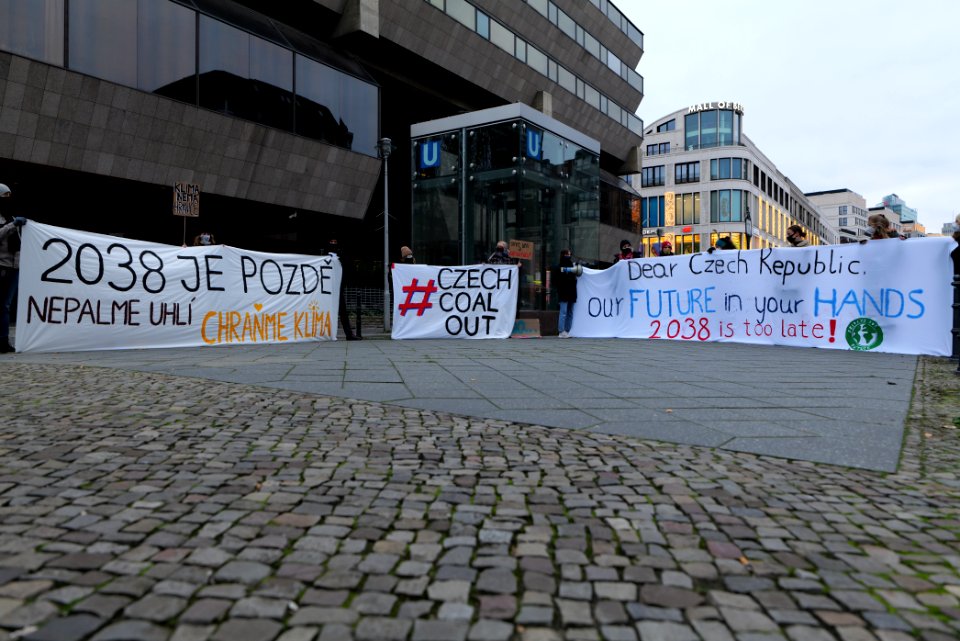 2038 JE POZDĚ
NEPALME UHLÍ
CHRAŇME KLIMA
KLIMA
NENÍ
#CZECH
COAL
OUT
Dear Czech Republic.
OUR FUTURE in your HANDS
2038 is too late!
U
U
MALL OF